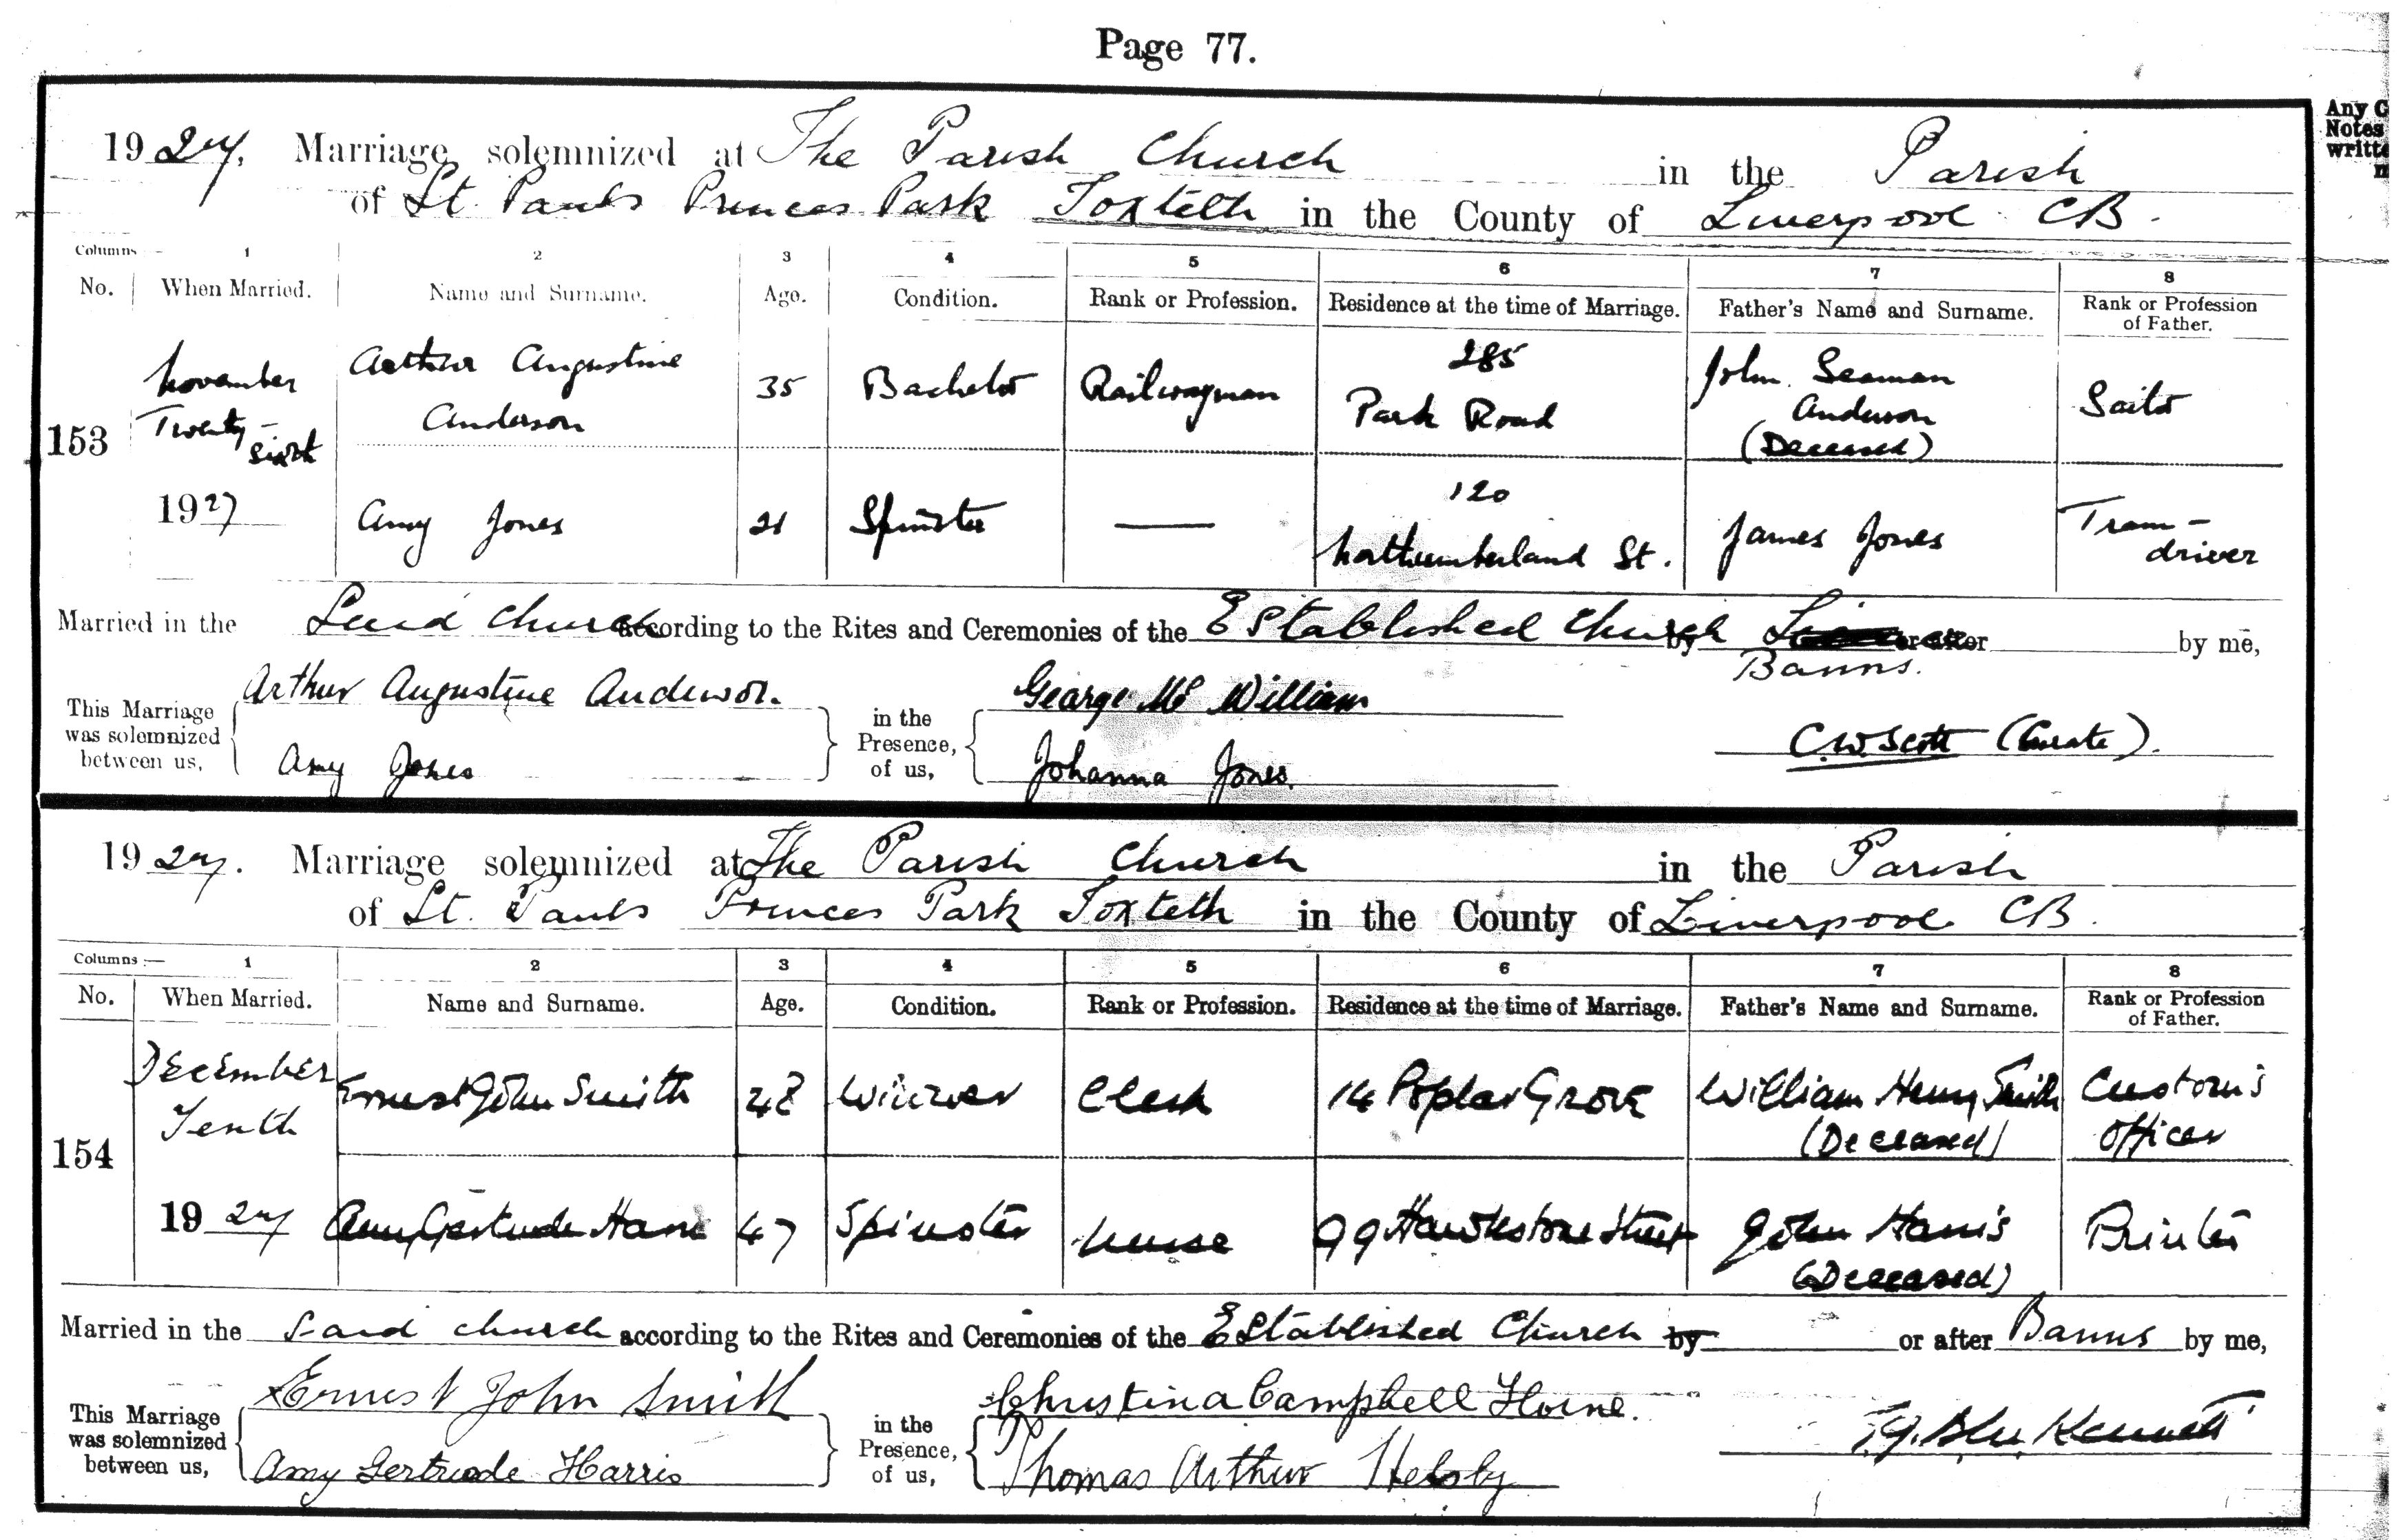 Page 77.
Any C
Notes
writte
n
1927. Marriage solemnized at The Parish Church in the Parish
of St. Pauls Princes Park Toxteth in the County of Liverpool CB.
Columns:— 1 2 3 4 5 6 7 8
No. When Married. Name and Surname. Age. Condition. Rank or Profession. Residence at the time of Marriage. Father's Name and Surname. Rank or Profession of Father.
153 November Twenty-sixth 1927
Arthur Augustine Anderson 35 Bachelor Railwayman 285 Park Road John Seaman Anderson (Deceased) Sailor
Amy Jones 21 Spinster — 120 Northumberland St. James Jones Tram-driver
Married in the Said Church according to the Rites and Ceremonies of the Established Church by or after by me,
Banns.
Arthur Augustine Anderson. George Mc William
This Marriage was solemnized between us, in the Presence, of us,
C.W. Scott (Curate).
Amy Jones Johanna Jones.
1927. Marriage solemnized at The Parish Church in the Parish
of St. Pauls Princes Park Toxteth in the County of Liverpool CB.
Columns:— 1 2 3 4 5 6 7 8
No. When Married. Name and Surname. Age. Condition. Rank or Profession. Residence at the time of Marriage. Father's Name and Surname. Rank or Profession of Father.
154 December Tenth 1927
Ernest John Smith 48 Widower Clerk 14 Poplar Grove William Henry Smith (Deceased) Custom's Officer
Amy Gertrude Harris 47 Spinster Nurse 99 Hawkstone Street John Harris (Deceased) Printer
Married in the Said church according to the Rites and Ceremonies of the Established Church by or after Banns by me,
Ernest John Smith Christina Campbell Horne.
This Marriage was solemnized between us, in the Presence, of us,
Amy Gertrude Harris Thomas Arthur Helsby